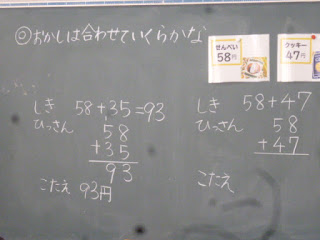 ◎おかしは合わせていくらかな
せんべい
58円
クッキー
47円
しき 58+35=93
ひっさん 58
+35
93
こたえ 93円
しき 58+47
ひっさん 58
+47
こたえ